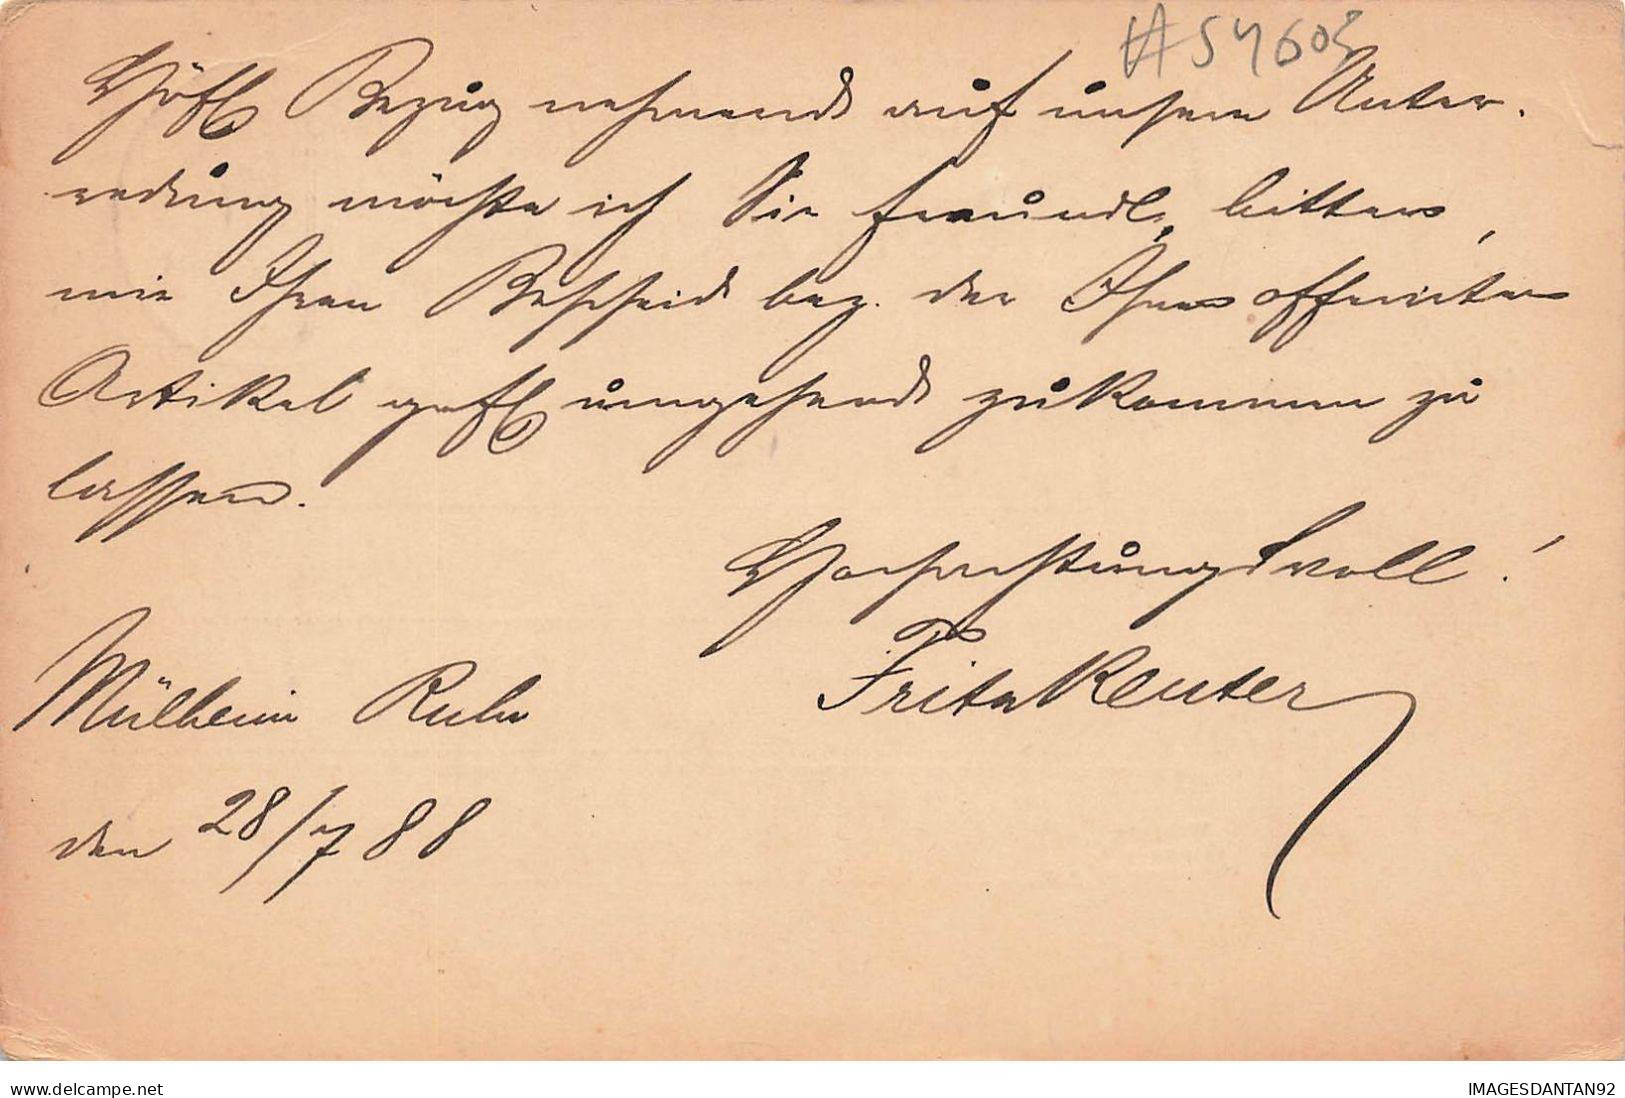 #54603
Höfl. Bezug nehmend auf unsere Unter-
redung möchte ich Sie freundl. bitten,
mir Ihren Bescheid bez. der Ihnen offerirten
Artikel gefl. umgehend zukommen zu
lassen.
Hochachtungsvoll!
Fritz Reuter
Mülheim Ruhr
den 28/7 88
www.delcampe.net
IMAGESDANTAN92